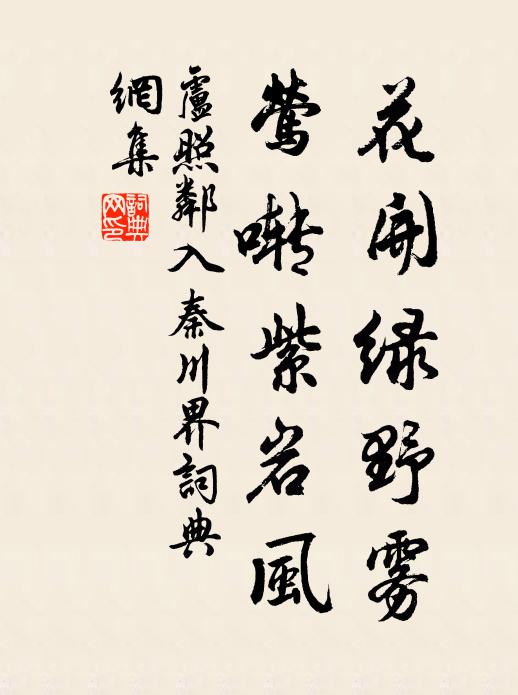 花開绿野雾
鶯啭紫岩風
盧照鄰入秦川界詞典
網集
詞典
网印